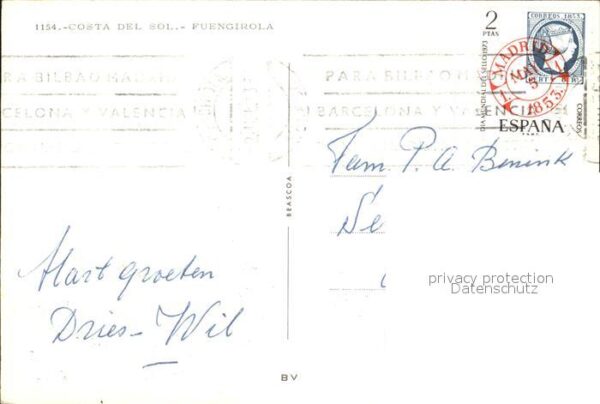 1154.-COSTA DEL SOL.- FUENGIROLA
2
PTAS
CORREOS 1853.
DIA MUNDIAL DEL SELLO 1973
MADRID
MAY
1853.
ESPAÑA
CORREOS
PARA BILBAO
BARCELONA Y VALENCIA
PARA BILBAO
BARCELONA Y VALENCIA
Fam. P. A. Benink
BEASCOA
Hart groeten
Dries-Wil
privacy protection
Datenschutz
BV